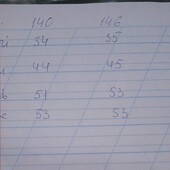 140 146
34 35
44 45
51 53
53 53